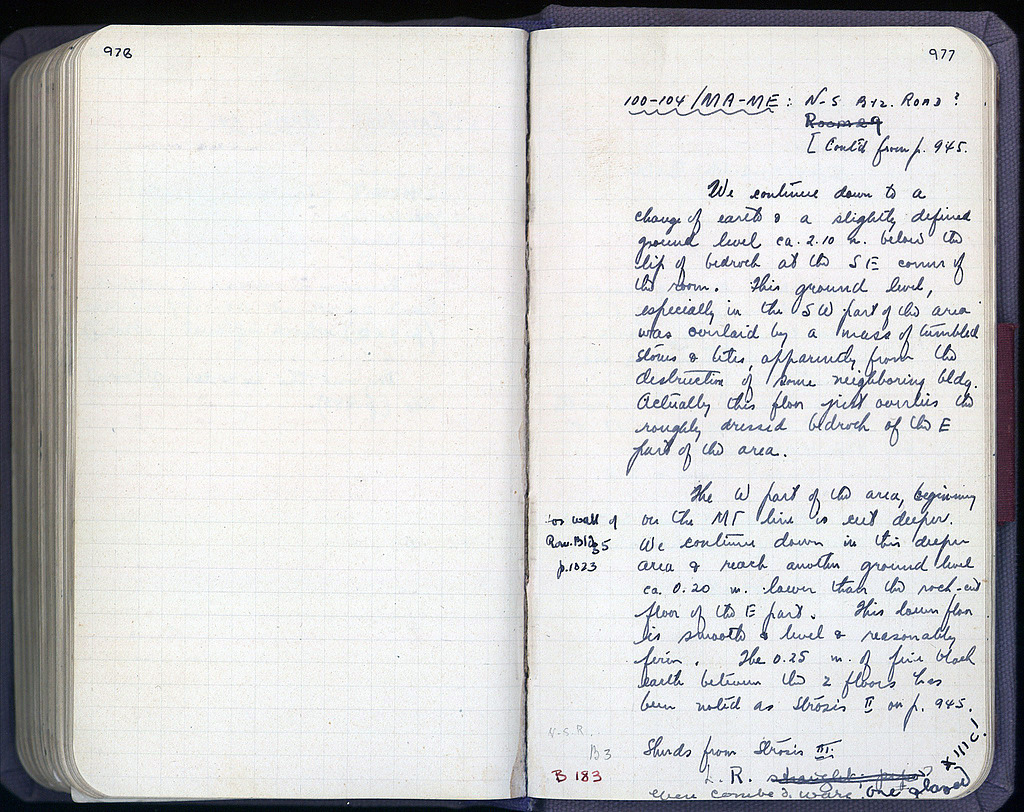 978
977
100-104/MA-ME: N-S Byz. Road?
Room 29
[Cont'd from p. 945.
We continue down to a
change of earth & a slightly defined
ground level ca. 2.10 m. below the
lip of bedrock at the SE corner of
the room. This ground level,
especially in the SW part of the area
was overlaid by a mass of tumbled
stones & tiles, apparently from the
destruction of some neighboring bldg.
Actually this floor just overlies the
roughly dressed bedrock of the E
part of the area.
The W part of the area, beginning
on the MΓ line is cut deeper.
We continue down in this deeper
area & reach another ground level
ca. 0.20 m. lower than the rock-cut
floor of the E part. This lower floor
is smooth & level & reasonably
firm. The 0.25 m. of fine black
earth between the 2 floors has
been noted as Strosis II on p. 945.
or wall of
Rom. Bldg
p. 1023
N-S.R.
B3
B 183
Sherds from Strosis III.
L. R.
even combed ware, one glazed
XIII C!